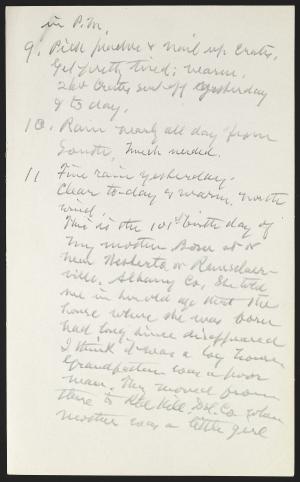 in P.M.
9. Pick peaches & nail up crates.
Get pretty tired; warm.
260 crates sent off yesterday
& to day.
10. Rain nearly all day from
South, much needed.
11 Fine rain yesterday.
Clear to-day & warm, north
wind.
This is the 101st birth day of
my mother Born at or
near or Rensselaer-
ville, Albany Co, She told
me in her old age that the
house where she was born
had long since disappeared
I think it was a log house
Grandfather was a poor
man. They moved from
there to Hill, Del. Co when
mother was a little girl